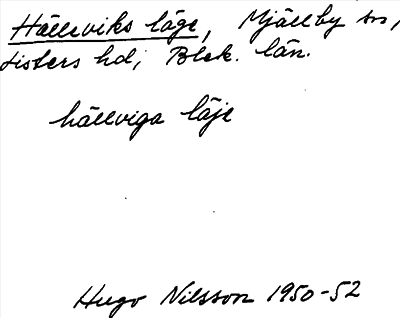 Hälleviks läge, Mjällby sn,
Listers hd, Blek. län.
hällviga läje
Hugo Nilsson 1950-52